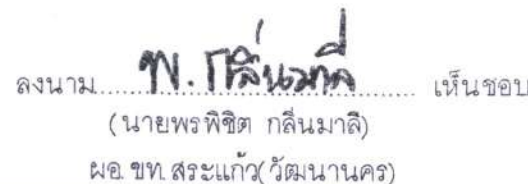 ลงนาม......พ. กลิ่นมาลี......เห็นชอบ
(นายพรพิชิต กลิ่นมาลี)
ผอ.ขท.สระแก้ว(วัฒนานคร)